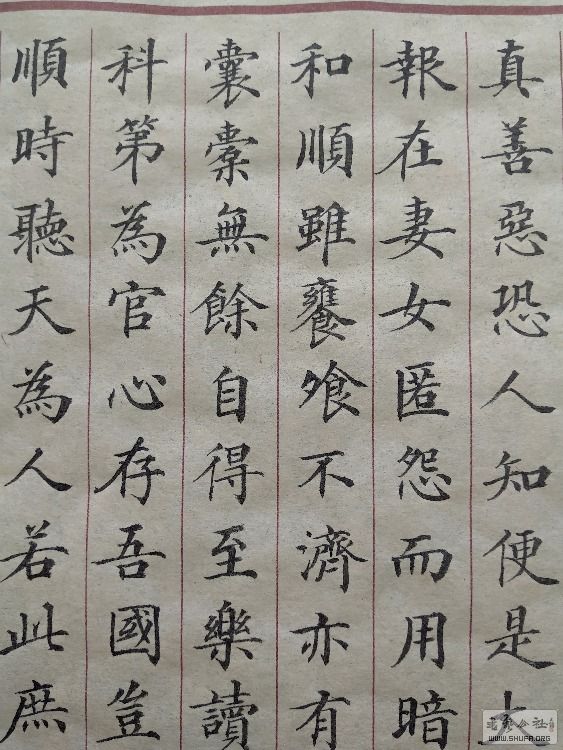 真善惡恐人知便是大
報在妻女匿怨而用暗
和順雖饔飧不濟亦有
囊橐無餘自得至樂讀
科第為官心存吾國豈
順時聽天為人若此庶
WWW.SHUFA.ORG